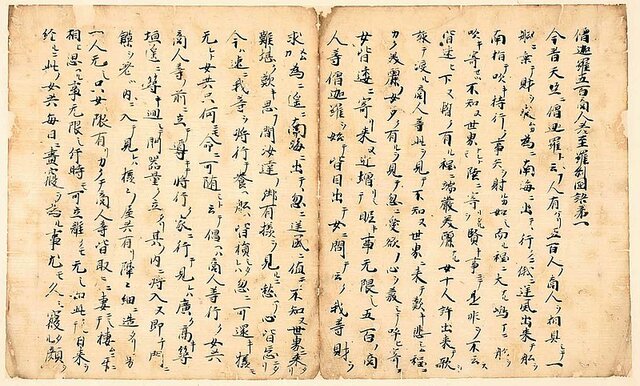 僧迦羅五百商人共至羅刹国語第一
今昔天竺ニ僧迦羅ト云フ人有ケリ五百人ノ商人ヲ相具シテ一
船ニ乗テ財ヲ求ムカ為ニ南海ニ出テ行クニ俄ニ逆風出来テ船ヲ
南ヲ指テ吹キ持行ク事矢ヲ射ルカ如シ而ル程ニ大ナル島ニ船ヲ
吹キ寄セツ不知ヌ世界ナレトモ陸ニ寄レルヲ賢キ事ニシテ是非ヲ不云ス
皆迷ヒ下ヌ暫ク有ル程ニ端厳美麗ナル女十人許出来テ歌ヲ
詠テ渡ル商人等此レヲ見テ不知ヌ世界ニ来テ歎キ悲ミツル程ニ
カク美麗ノ女多ク有リケルヲ見テ忽ニ愛欲ノ心ヲ発シテ呼ヒ寄ス
女皆寄リ来ヌ近増リシテ眤キ事无限シ五百ノ商
人等僧迦羅ヲ始テ皆目出テ女ニ問テ云ク我等財ヲ
求ムカ為ニ遥ニ南海ニ出テ忽ニ逆風ニ値テ不知ヌ世界ニ来レリ
難堪ク歎キ思フ間汝達ノ御有様ヲ見ルニ愁ノ心皆忘ニタリ
今ハ速ニ我等ヲ将行テ養ヘ船ハ皆損シタレハ忽ニ可還キ様
无シト女共只何ニモ令ムニ可随シト云テ倡ヘハ商人等行ヌ女共
商人等ノ前ニ立テ導テ将行ク家ニ行着テ見レハ広ク高キ築
垣遥ニ築廻シテ門器量ク立タリ其ノ内ニ将入ヌ即チ門ニ
差ツ内ニ入テ見レハ様々ノ屋共有リ隔々ニ細ニ造タリ男
一人モ无シ只女ノ限リ有リカクテ商人等皆取々ニ妻トシテ棲ムニ互ニ
相ヒ思ヘル事无限シ片時モ可立離クモ无シ如此クテ日来ヲ
経ルニ此ノ女共毎日ニ昼寝ヲ為ル事尤モ久シ寝ル顔